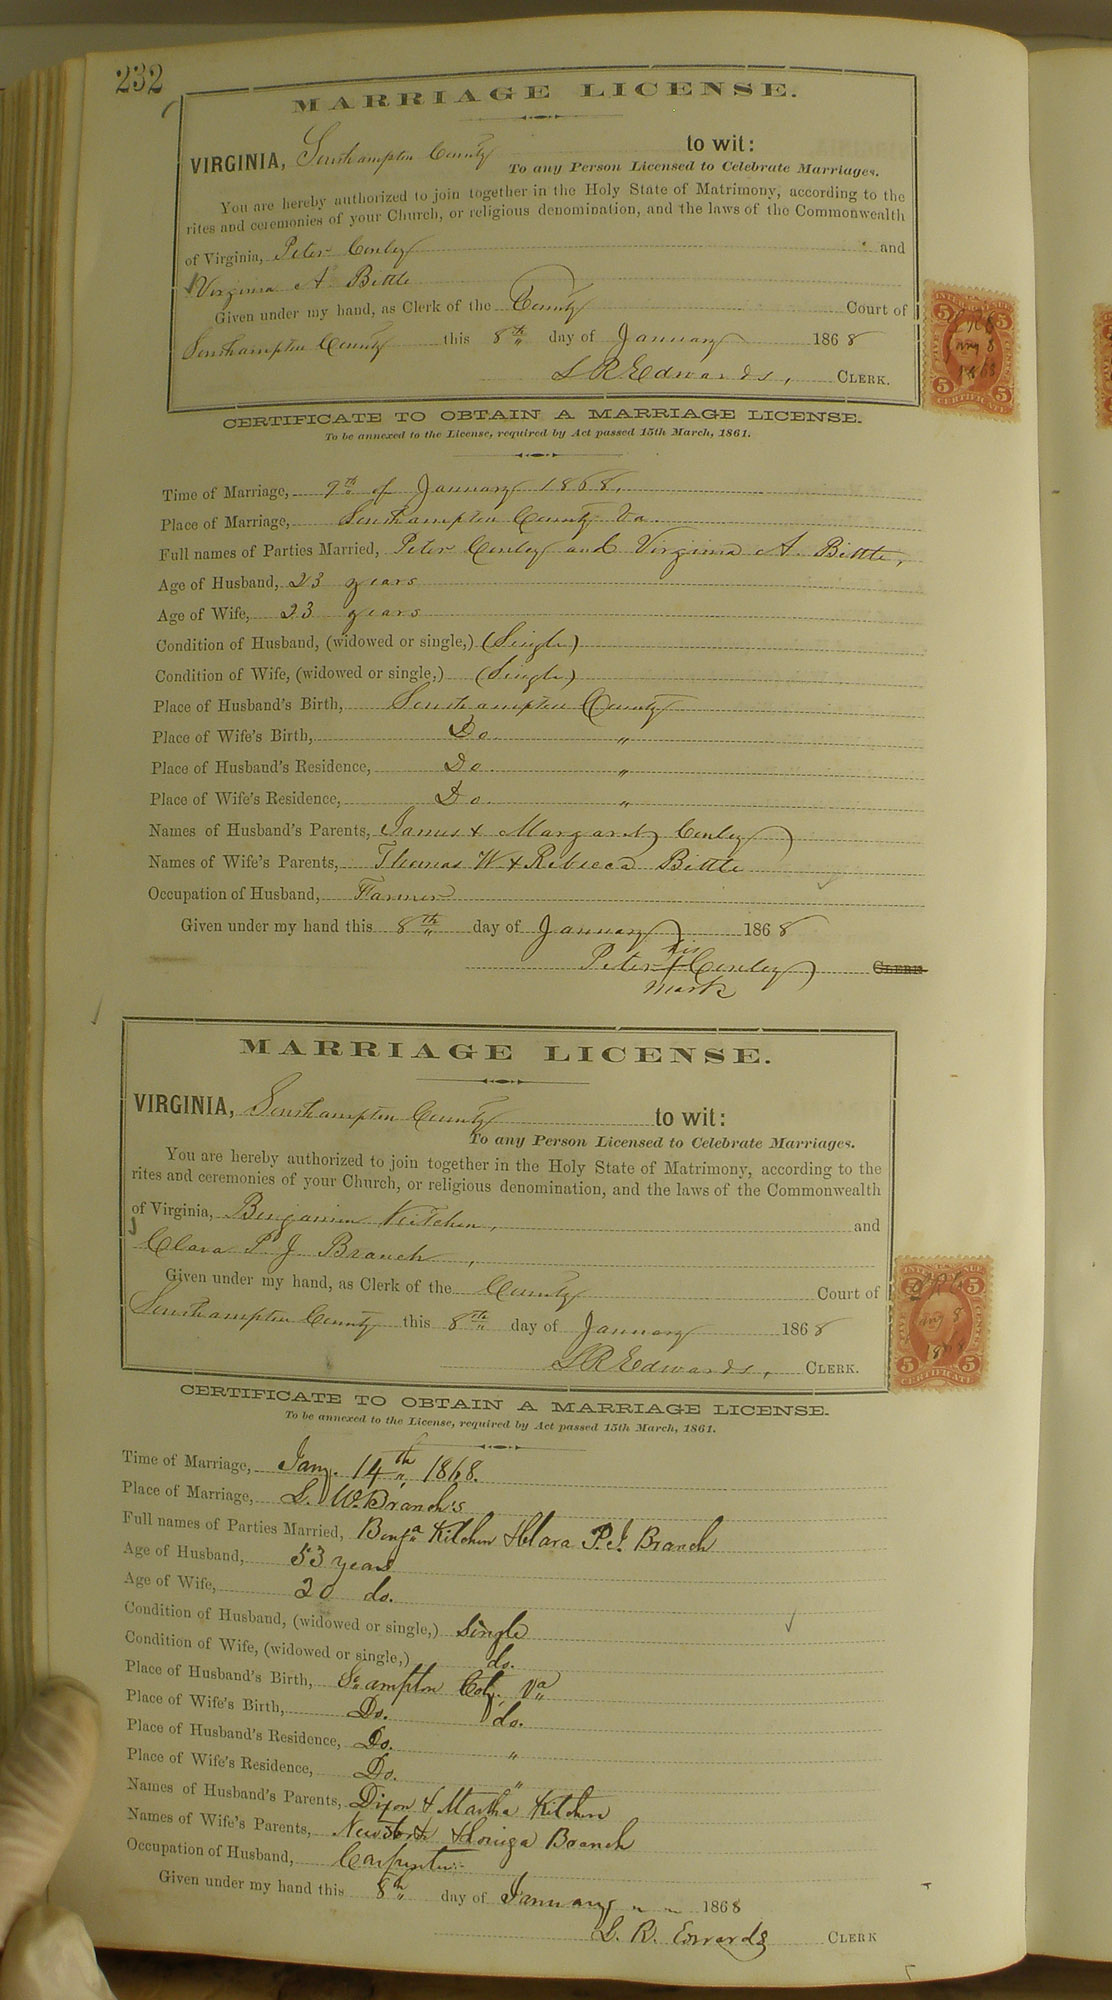 232
MARRIAGE LICENSE.
VIRGINIA, Southampton County to wit:
To any Person Licensed to Celebrate Marriages.
You are hereby authorized to join together in the Holy State of Matrimony, according to the
rites and ceremonies of your Church, or religious denomination, and the laws of the Commonwealth
of Virginia, Peter Conley and
Virginia A. Bittle
Given under my hand, as Clerk of the County Court of
Southampton County this 8th day of January 1868
L R Edwards, CLERK.
CERTIFICATE TO OBTAIN A MARRIAGE LICENSE.
To be annexed to the License, required by Act passed 15th March, 1861.
Time of Marriage, 9th of January 1868.
Place of Marriage, Southampton County Va.
Full names of Parties Married, Peter Conley and Virginia A. Bittle,
Age of Husband, 23 years
Age of Wife, 23 years
Condition of Husband, (widowed or single,) (Single)
Condition of Wife, (widowed or single,) (Single)
Place of Husband's Birth, Southampton County
Place of Wife's Birth, Do. "
Place of Husband's Residence, Do "
Place of Wife's Residence, Do. "
Names of Husband's Parents, James & Margaret Conley
Names of Wife's Parents, Thomas W & Rebecca Bittle
Occupation of Husband, Farmer
Given under my hand this 8th day of January 1868
his
Peter + Conley CLERK
mark
MARRIAGE LICENSE.
VIRGINIA, Southampton County to wit:
To any Person Licensed to Celebrate Marriages.
You are hereby authorized to join together in the Holy State of Matrimony, according to the
rites and ceremonies of your Church, or religious denomination, and the laws of the Commonwealth
of Virginia, Benjamin Kitchen, and
Clara P J Branch,
Given under my hand, as Clerk of the County Court of
Southampton County this 8th day of January 1868
L R Edwards, CLERK.
CERTIFICATE TO OBTAIN A MARRIAGE LICENSE.
To be annexed to the License, required by Act passed 15th March, 1861.
Time of Marriage, Jany. 14th 1868.
Place of Marriage, L. W. Branch's
Full names of Parties Married, Benja Kitchen & Clara P. J. Branch
Age of Husband, 53 years
Age of Wife, 20 do.
Condition of Husband, (widowed or single,) Single
Condition of Wife, (widowed or single,) do.
Place of Husband's Birth, So.ampton Coty. Va
Place of Wife's Birth, Do. do.
Place of Husband's Residence, Do. "
Place of Wife's Residence, Do. "
Names of Husband's Parents, Dixon & Martha Kitchen
Names of Wife's Parents, & Louiza Branch
Occupation of Husband, Carpenter
Given under my hand this 8th day of January " " 1868
L. R. Edwards CLERK